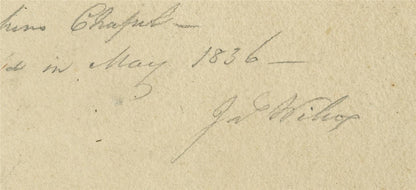 hins Chapel —
'd in May 1836 —
J D Wilcox